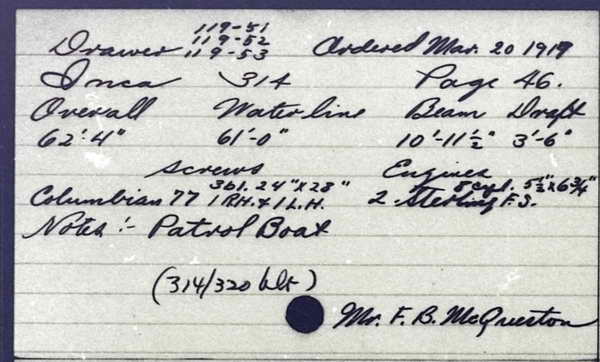 119-51
119-52
Drawer 119-53 Ordered Mar. 20 1919
Inca 314 Page 46.
Overall Waterline Beam Draft
62'-4" 61'-0" 10'-11½" 3'-6"
Screws Engines
3bl. 24"x28" 8 cyl. 5½"x6¾"
Columbian 77 1 R.H. & 1 L.H. 2. Sterling F.S.
Notes :- Patrol Boat
(314/320 blt)
Mr. F. B. McQuestion